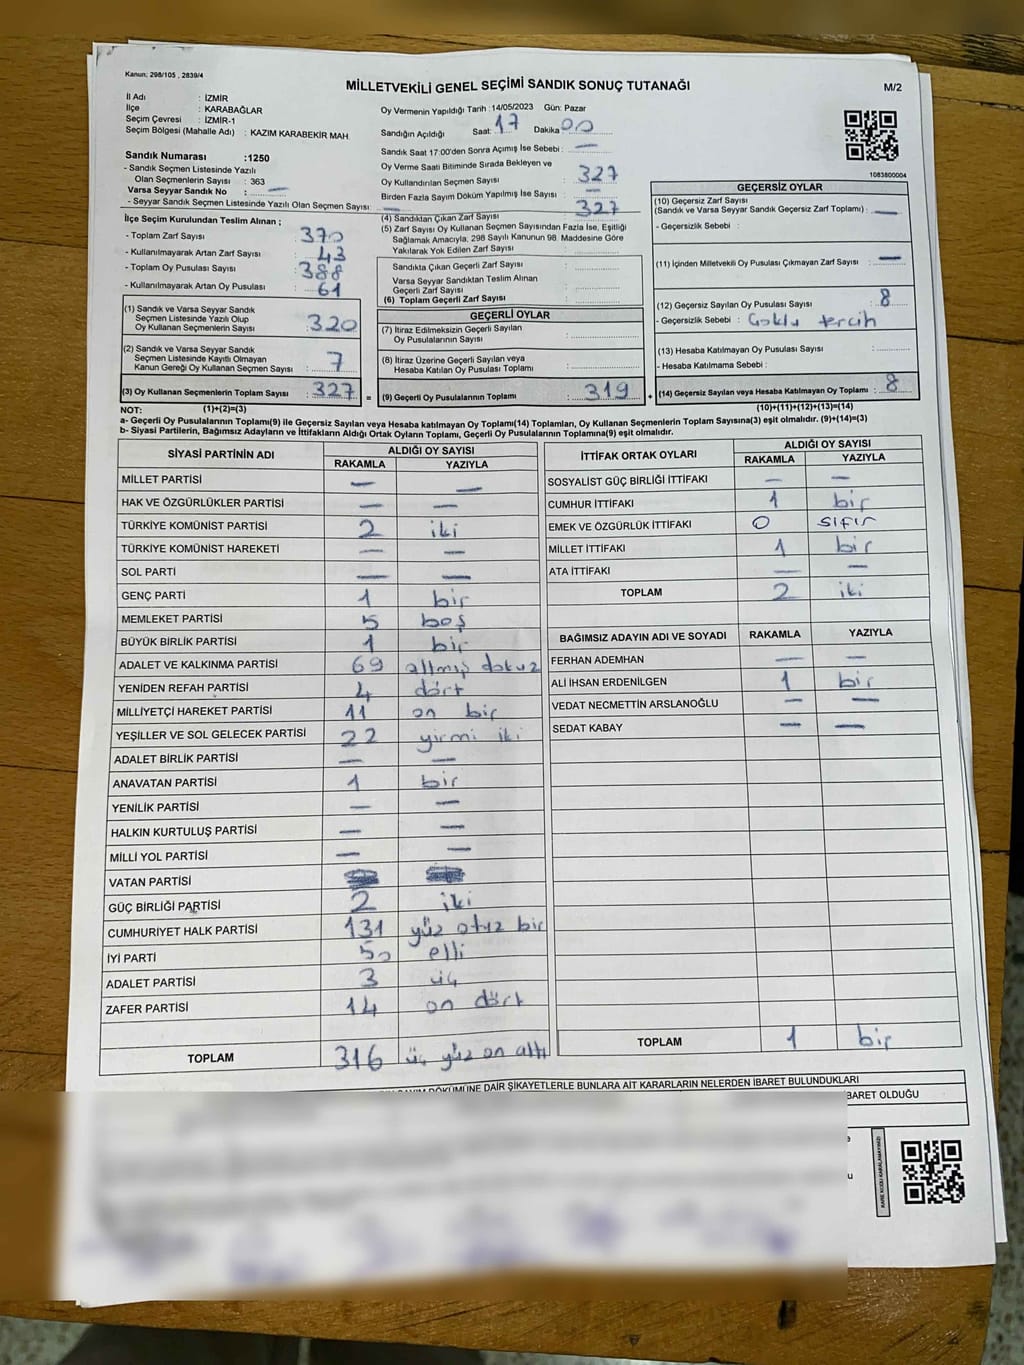 Kanun: 298/105 , 2839/4
MİLLETVEKİLİ GENEL SEÇİMİ SANDIK SONUÇ TUTANAĞI
M/2
İl Adı : İZMİR
İlçe : KARABAĞLAR
Seçim Çevresi : İZMİR-1
Seçim Bölgesi (Mahalle Adı) : KAZIM KARABEKİR MAH.
Sandık Numarası :1250
- Sandık Seçmen Listesinde Yazılı
Olan Seçmenlerin Sayısı : 363
Varsa Seyyar Sandık No : —
- Seyyar Sandık Seçmen Listesinde Yazılı Olan Seçmen Sayısı: —
Oy Vermenin Yapıldığı Tarih :14/05/2023 Gün: Pazar
Sandığın Açıldığı Saat: 17 Dakika 00
Sandık Saat 17:00'den Sonra Açımış İse Sebebi : —
Oy Verme Saati Bitiminde Sırada Bekleyen ve
Oy Kullandırılan Seçmen Sayısı 327
Birden Fazla Sayım Döküm Yapılmış İse Sayısı : —
1083800004
İlçe Seçim Kurulundan Teslim Alınan ;
- Toplam Zarf Sayısı : 370
- Kullanılmayarak Artan Zarf Sayısı : 43
- Toplam Oy Pusulası Sayısı : 388
- Kullanılmayarak Artan Oy Pusulası : 61
(1) Sandık ve Varsa Seyyar Sandık
Seçmen Listesinde Yazılı Olup
Oy Kullanan Seçmenlerin Sayısı : 320
(2) Sandık ve Varsa Seyyar Sandık
Seçmen Listesinde Kayıtlı Olmayan
Kanun Gereği Oy Kullanan Seçmen Sayısı : 7
(3) Oy Kullanan Seçmenlerin Toplam Sayısı : 327
(4) Sandıktan Çıkan Zarf Sayısı 327
(5) Zarf Sayısı Oy Kullanan Seçmen Sayısından Fazla İse, Eşitliği
Sağlamak Amacıyla, 298 Sayılı Kanunun 98. Maddesine Göre
Yakılarak Yok Edilen Zarf Sayısı :
Sandıkta Çıkan Geçerli Zarf Sayısı :
Varsa Seyyar Sandıktan Teslim Alınan
Geçerli Zarf Sayısı :
(6) Toplam Geçerli Zarf Sayısı :
GEÇERLİ OYLAR
(7) İtiraz Edilmeksizin Geçerli Sayılan
Oy Pusulalarının Sayısı :
(8) İtiraz Üzerine Geçerli Sayılan veya
Hesaba Katılan Oy Pusulası Toplamı :
= (9) Geçerli Oy Pusulalarının Toplamı : 319 +
GEÇERSİZ OYLAR
(10) Geçersiz Zarf Sayısı
(Sandık ve Varsa Seyyar Sandık Geçersiz Zarf Toplamı) : —
- Geçersizlik Sebebi :
(11) İçinden Milletvekili Oy Pusulası Çıkmayan Zarf Sayısı : —
(12) Geçersiz Sayılan Oy Pusulası Sayısı : 8
- Geçersizlik Sebebi : Çoklu tercih
(13) Hesaba Katılmayan Oy Pusulası Sayısı :
- Hesaba Katılmama Sebebi :
(14) Geçersiz Sayılan veya Hesaba Katılmayan Oy Toplamı : 8
NOT: (1)+(2)=(3)
(10)+(11)+(12)+(13)=(14)
a- Geçerli Oy Pusulalarının Toplamı(9) ile Geçersiz Sayılan veya Hesaba katılmayan Oy Toplamı(14) Toplamları, Oy Kullanan Seçmenlerin Toplam Sayısına(3) eşit olmalıdır. (9)+(14)=(3)
b- Siyasi Partilerin, Bağımsız Adayların ve İttifakların Aldığı Ortak Oyların Toplamı, Geçerli Oy Pusulalarının Toplamına(9) eşit olmalıdır.
SİYASİ PARTİNİN ADI ALDIĞI OY SAYISI
RAKAMLA YAZIYLA
MİLLET PARTİSİ — —
HAK VE ÖZGÜRLÜKLER PARTİSİ — —
TÜRKİYE KOMÜNİST PARTİSİ 2 iki
TÜRKİYE KOMÜNİST HAREKETİ — —
SOL PARTİ — —
GENÇ PARTİ 1 bir
MEMLEKET PARTİSİ 5 beş
BÜYÜK BİRLİK PARTİSİ 1 bir
ADALET VE KALKINMA PARTİSİ 69 altmış dokuz
YENİDEN REFAH PARTİSİ 4 dört
MİLLİYETÇİ HAREKET PARTİSİ 11 on bir
YEŞİLLER VE SOL GELECEK PARTİSİ 22 yirmi iki
ADALET BİRLİK PARTİSİ — —
ANAVATAN PARTİSİ 1 bir
YENİLİK PARTİSİ — —
HALKIN KURTULUŞ PARTİSİ — —
MİLLİ YOL PARTİSİ — —
VATAN PARTİSİ
GÜÇ BİRLİĞİ PARTİSİ 2 iki
CUMHURİYET HALK PARTİSİ 131 yüz otuz bir
İYİ PARTİ 50 elli
ADALET PARTİSİ 3 üç
ZAFER PARTİSİ 14 on dört
TOPLAM 316 üç yüz on altı
İTTİFAK ORTAK OYLARI ALDIĞI OY SAYISI
RAKAMLA YAZIYLA
SOSYALİST GÜÇ BİRLİĞİ İTTİFAKI — —
CUMHUR İTTİFAKI 1 bir
EMEK VE ÖZGÜRLÜK İTTİFAKI 0 sıfır
MİLLET İTTİFAKI 1 bir
ATA İTTİFAKI — —
TOPLAM 2 iki
BAĞIMSIZ ADAYIN ADI VE SOYADI RAKAMLA YAZIYLA
FERHAN ADEMHAN — —
ALİ İHSAN ERDENİLGEN 1 bir
VEDAT NECMETTİN ARSLANOĞLU — —
SEDAT KABAY — —
TOPLAM 1 bir
DÖKÜMÜNE DAİR ŞİKAYETLERLE BUNLARA AİT KARARLARIN NELERDEN İBARET BULUNDUKLARI
BARET OLDUĞU